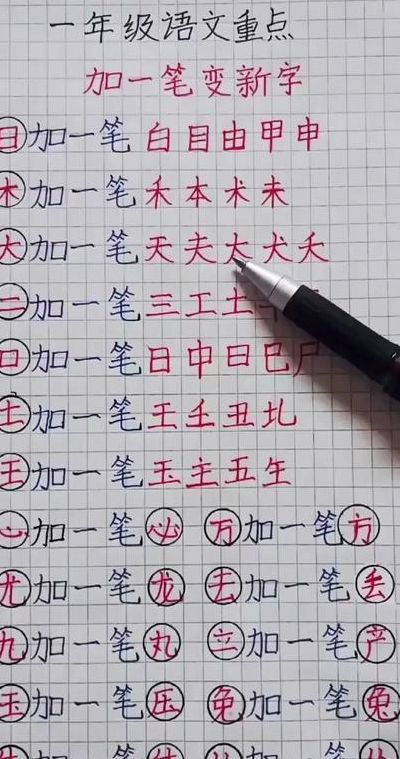 一年级语文重点
加一笔变新字
日加一笔 白目由甲申
木加一笔 禾本术未
大加一笔 天夫太犬夭
二加一笔 三工土
口加一笔 日中曰巳尸
土加一笔 王壬丑圠
王加一笔 玉主五生
心加一笔必 万加一笔方
尤加一笔龙 去加一笔丢
九加一笔丸 立加一笔产
玉加一笔压 免加一笔兔
加一笔 加一笔